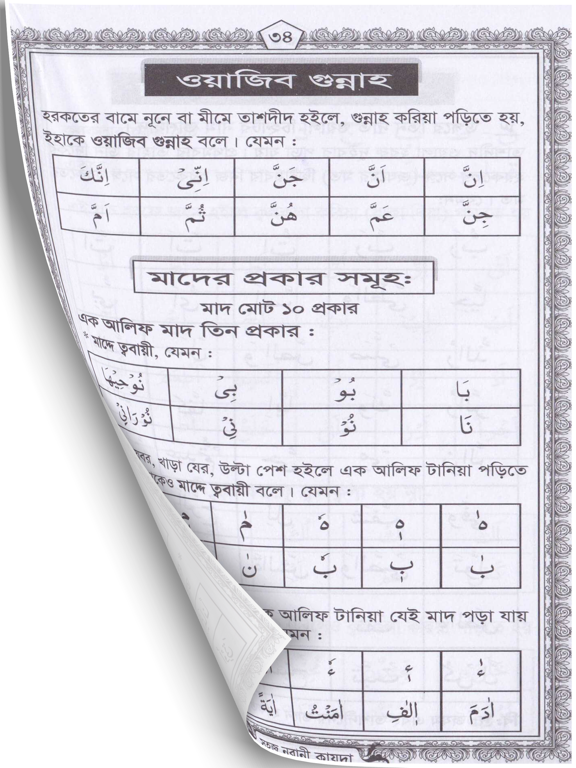 ৩৪
ওয়াজিব গুন্নাহ
হরকতের বামে নূনে বা মীমে তাশদীদ হইলে, গুন্নাহ করিয়া পড়িতে হয়,
ইহাকে ওয়াজিব গুন্নাহ বলে। যেমন :
اِنَّ اَنَّ جَنَّ اِنِّیْ اِنَّكَ
جِنَّ عَمَّ هُنَّ ثُمَّ اَمَّ
মাদের প্রকার সমূহ:
মাদ মোট ১০ প্রকার
এক আলিফ মাদ তিন প্রকার :
* মাদ্দে ত্ববায়ী, যেমন :
بَا بُوْ بِیْ نُوْحِیْهَا
نَا نُوْ نِیْ نُوْرَانِیْ
খাড়া যের, উল্টা পেশ হইলে এক আলিফ টানিয়া পড়িতে
মাদ্দে ত্ববায়ী বলে। যেমন :
هٰ هٖ هٗ مٰ
بٰ بٖ بٗ نٰ
আলিফ টানিয়া যেই মাদ পড়া যায়
ءٰ ءٖ ءٗ
اٰدَمَ اٖلٰفِ اٰمَنْتُ اٰیَةً
নূরানী কায়দা